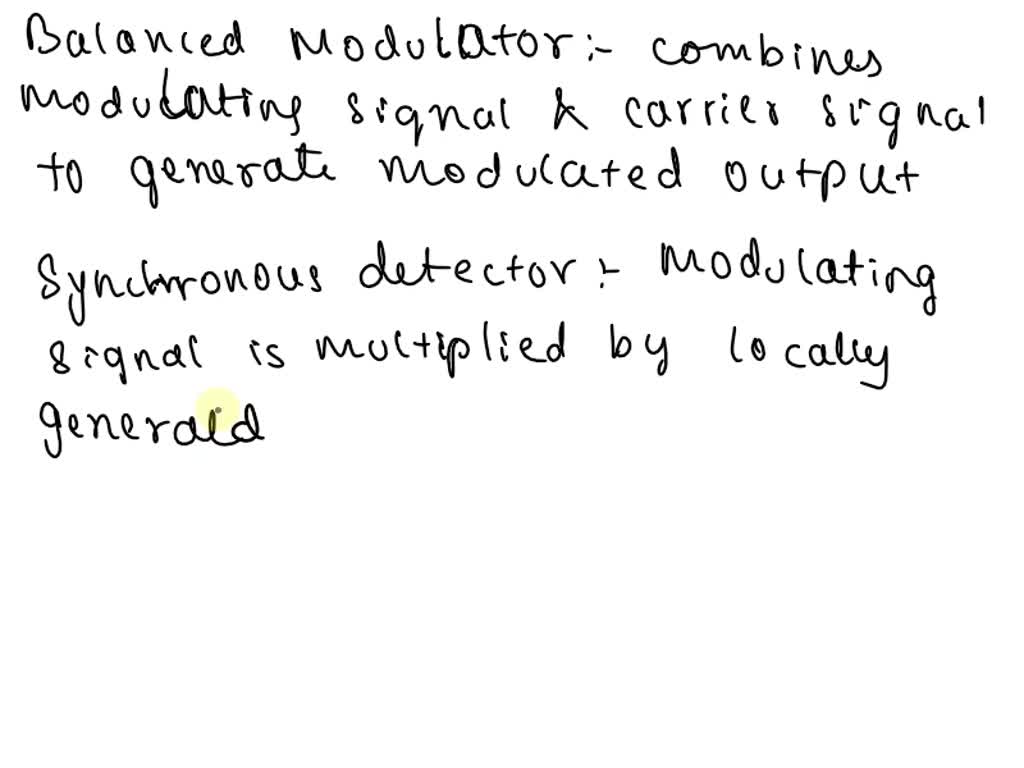 Balanced Modulator :- combines
modulating signal & carrier signal
to generate modulated output
Synchronous detector :- Modulating
signal is multiplied by locally
generated